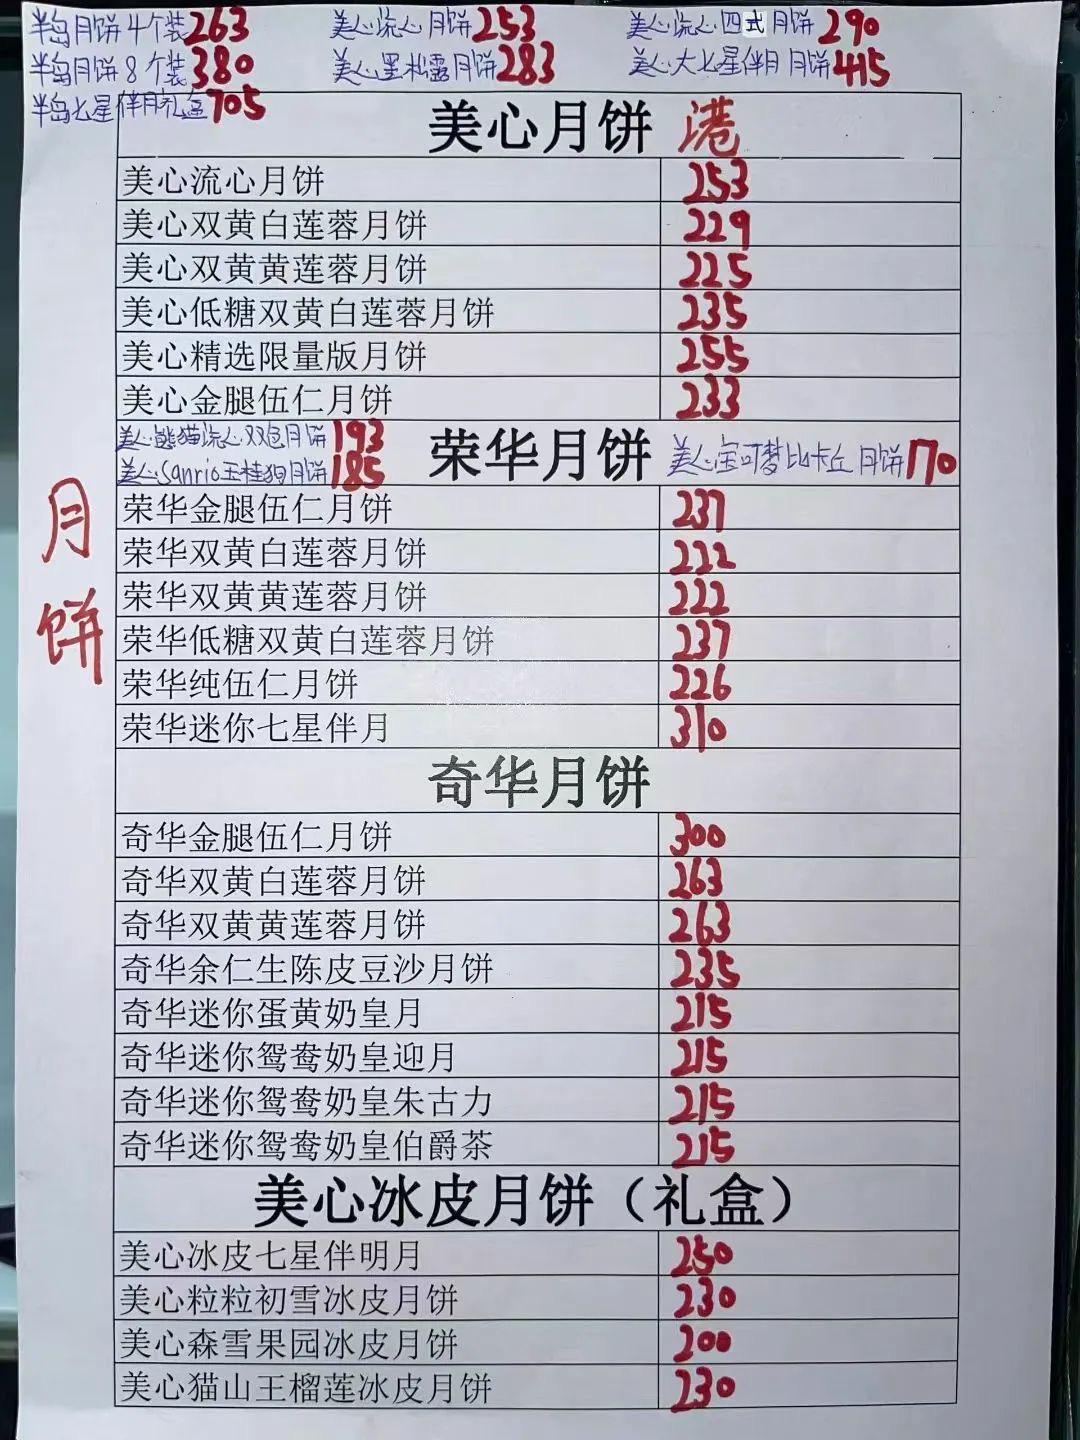 半岛月饼4个装263 美心流心月饼253 美心流心四式月饼290
半岛月饼8个装380 美心黑松露月饼283 美心大七星伴月月饼415
半岛七星伴月礼盒705
美心月饼 港
美心流心月饼 253
美心双黄白莲蓉月饼 229
美心双黄黄莲蓉月饼 225
美心低糖双黄白莲蓉月饼 235
美心精选限量版月饼 255
美心金腿伍仁月饼 233
美心熊猫流心双包月饼193
美心Sanrio玉桂狗月饼185
荣华月饼
美心宝可梦比卡丘月饼170
荣华金腿伍仁月饼 237
荣华双黄白莲蓉月饼 222
荣华双黄黄莲蓉月饼 222
荣华低糖双黄白莲蓉月饼 237
荣华纯伍仁月饼 226
荣华迷你七星伴月 310
月饼
奇华月饼
奇华金腿伍仁月饼 300
奇华双黄白莲蓉月饼 263
奇华双黄黄莲蓉月饼 263
奇华余仁生陈皮豆沙月饼 235
奇华迷你蛋黄奶皇月 215
奇华迷你鸳鸯奶皇迎月 215
奇华迷你鸳鸯奶皇朱古力 215
奇华迷你鸳鸯奶皇伯爵茶 215
美心冰皮月饼（礼盒）
美心冰皮七星伴明月 250
美心粒粒初雪冰皮月饼 230
美心森雪果园冰皮月饼 200
美心猫山王榴莲冰皮月饼 230